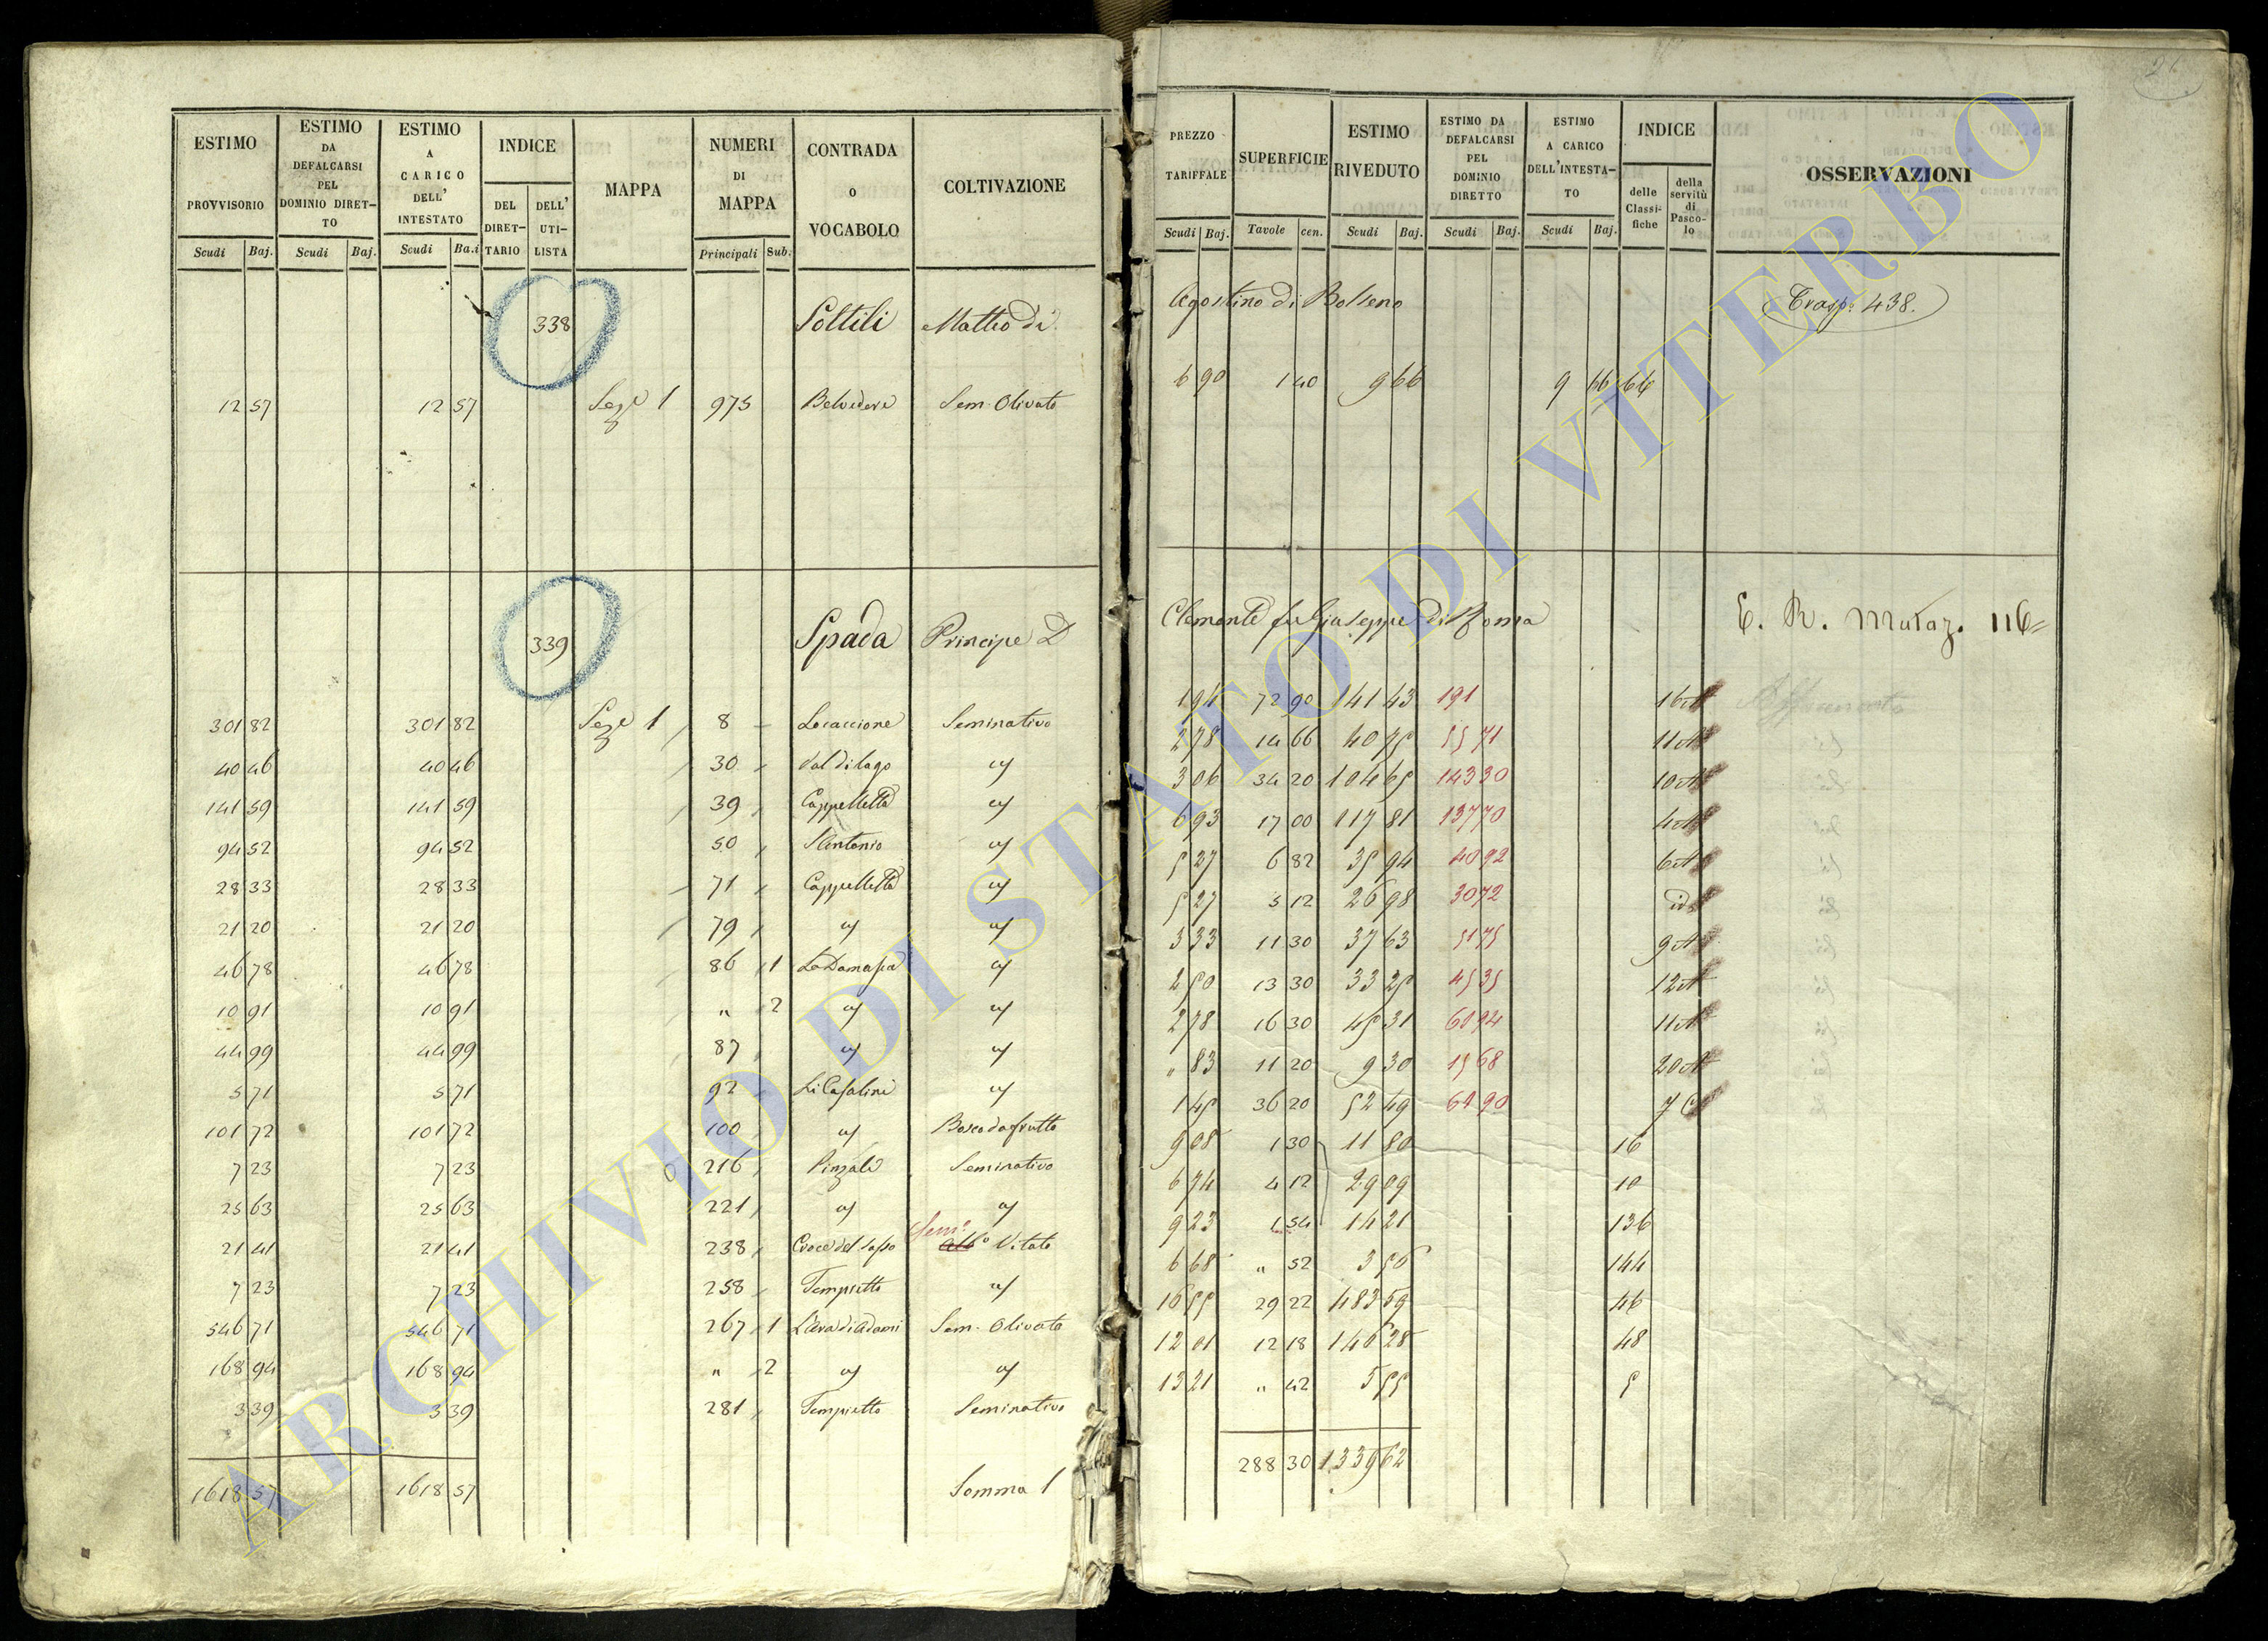 ESTIMO PROVVISORIO | ESTIMO DA DEFALCARSI PEL DOMINIO DIRET-TO | ESTIMO A CARICO DELL' INTESTATO | INDICE | MAPPA | NUMERI DI MAPPA | CONTRADA o VOCABOLO | COLTIVAZIONE
DEL DIRET-TARIO | DELL' UTI-LISTA
Scudi | Baj. | Scudi | Baj. | Scudi | Ba.i | Principali | Sub.
338 Sottili Matteo di
12 57 12 57 Seze 1 975 Belvedere Sem. Olivato
339 Spada Principe D
301 82 301 82 Seze 1 8 Locaccione Seminativo
40 46 40 46 30 Val di lago "
141 59 141 59 39 Cappelletta "
94 52 94 52 50 S. Antonio "
28 33 28 33 71 Cappelletta "
21 20 21 20 79 " "
46 78 46 78 86 1 "
10 91 10 91 " 2 " "
44 99 44 99 87 " "
5 71 5 71 92 Li Casalini "
101 72 101 72 100 " Bosco da frutto
7 23 7 23 216 Pinzale Seminativo
25 63 25 63 221 " "
21 41 21 41 238 Croce del Sasso Sem.o Vitato
7 23 7 23 258 Tempietto "
546 71 546 71 267 1 L'Ara di Adami Sem. Olivato
168 94 168 94 " 2 " "
3 39 3 39 281 Tempietto Seminativo
1618 57 1618 57 Somma 1
26
PREZZO TARIFFALE | SUPERFICIE | ESTIMO RIVEDUTO | ESTIMO DA DEFALCARSI PEL DOMINIO DIRETTO | ESTIMO A CARICO DELL'INTESTA-TO | INDICE | OSSERVAZIONI
delle Classi-fiche | della servitù di Pasco-lo
Scudi | Baj. | Tavole | cen. | Scudi | Baj. | Scudi | Baj. | Scudi | Baj.
Agostino di Bolseno Trasp: 438.
6 90 1 40 9 66 9 66 66
Clemente fu Giuseppe di Roma E. R. Mutaz. 116
1 94 72 90 141 43 191 16 A
2 78 14 66 40 75 55 71 11 A
3 06 34 20 104 65 143 30 10 A
6 93 17 00 117 81 137 70 4 A
5 27 6 82 35 94 40 92 6 A
5 27 5 12 26 98 30 72 id
3 33 11 30 37 63 51 75 9 A
2 50 13 30 33 25 45 35 12 A
2 78 16 30 45 31 61 94 11 A
" 83 11 20 9 30 15 68 20 A
1 45 36 20 52 49 69 90 7 C
9 08 1 30 11 80 16
6 74 4 12 29 09 10
9 23 1 54 14 21 136
6 68 " 52 3 50 144
16 55 29 22 483 59 46
12 01 12 18 146 28 48
13 21 " 42 5 55 5
288 30 1339 62
ARCHIVIO DI STATO DI VITERBO